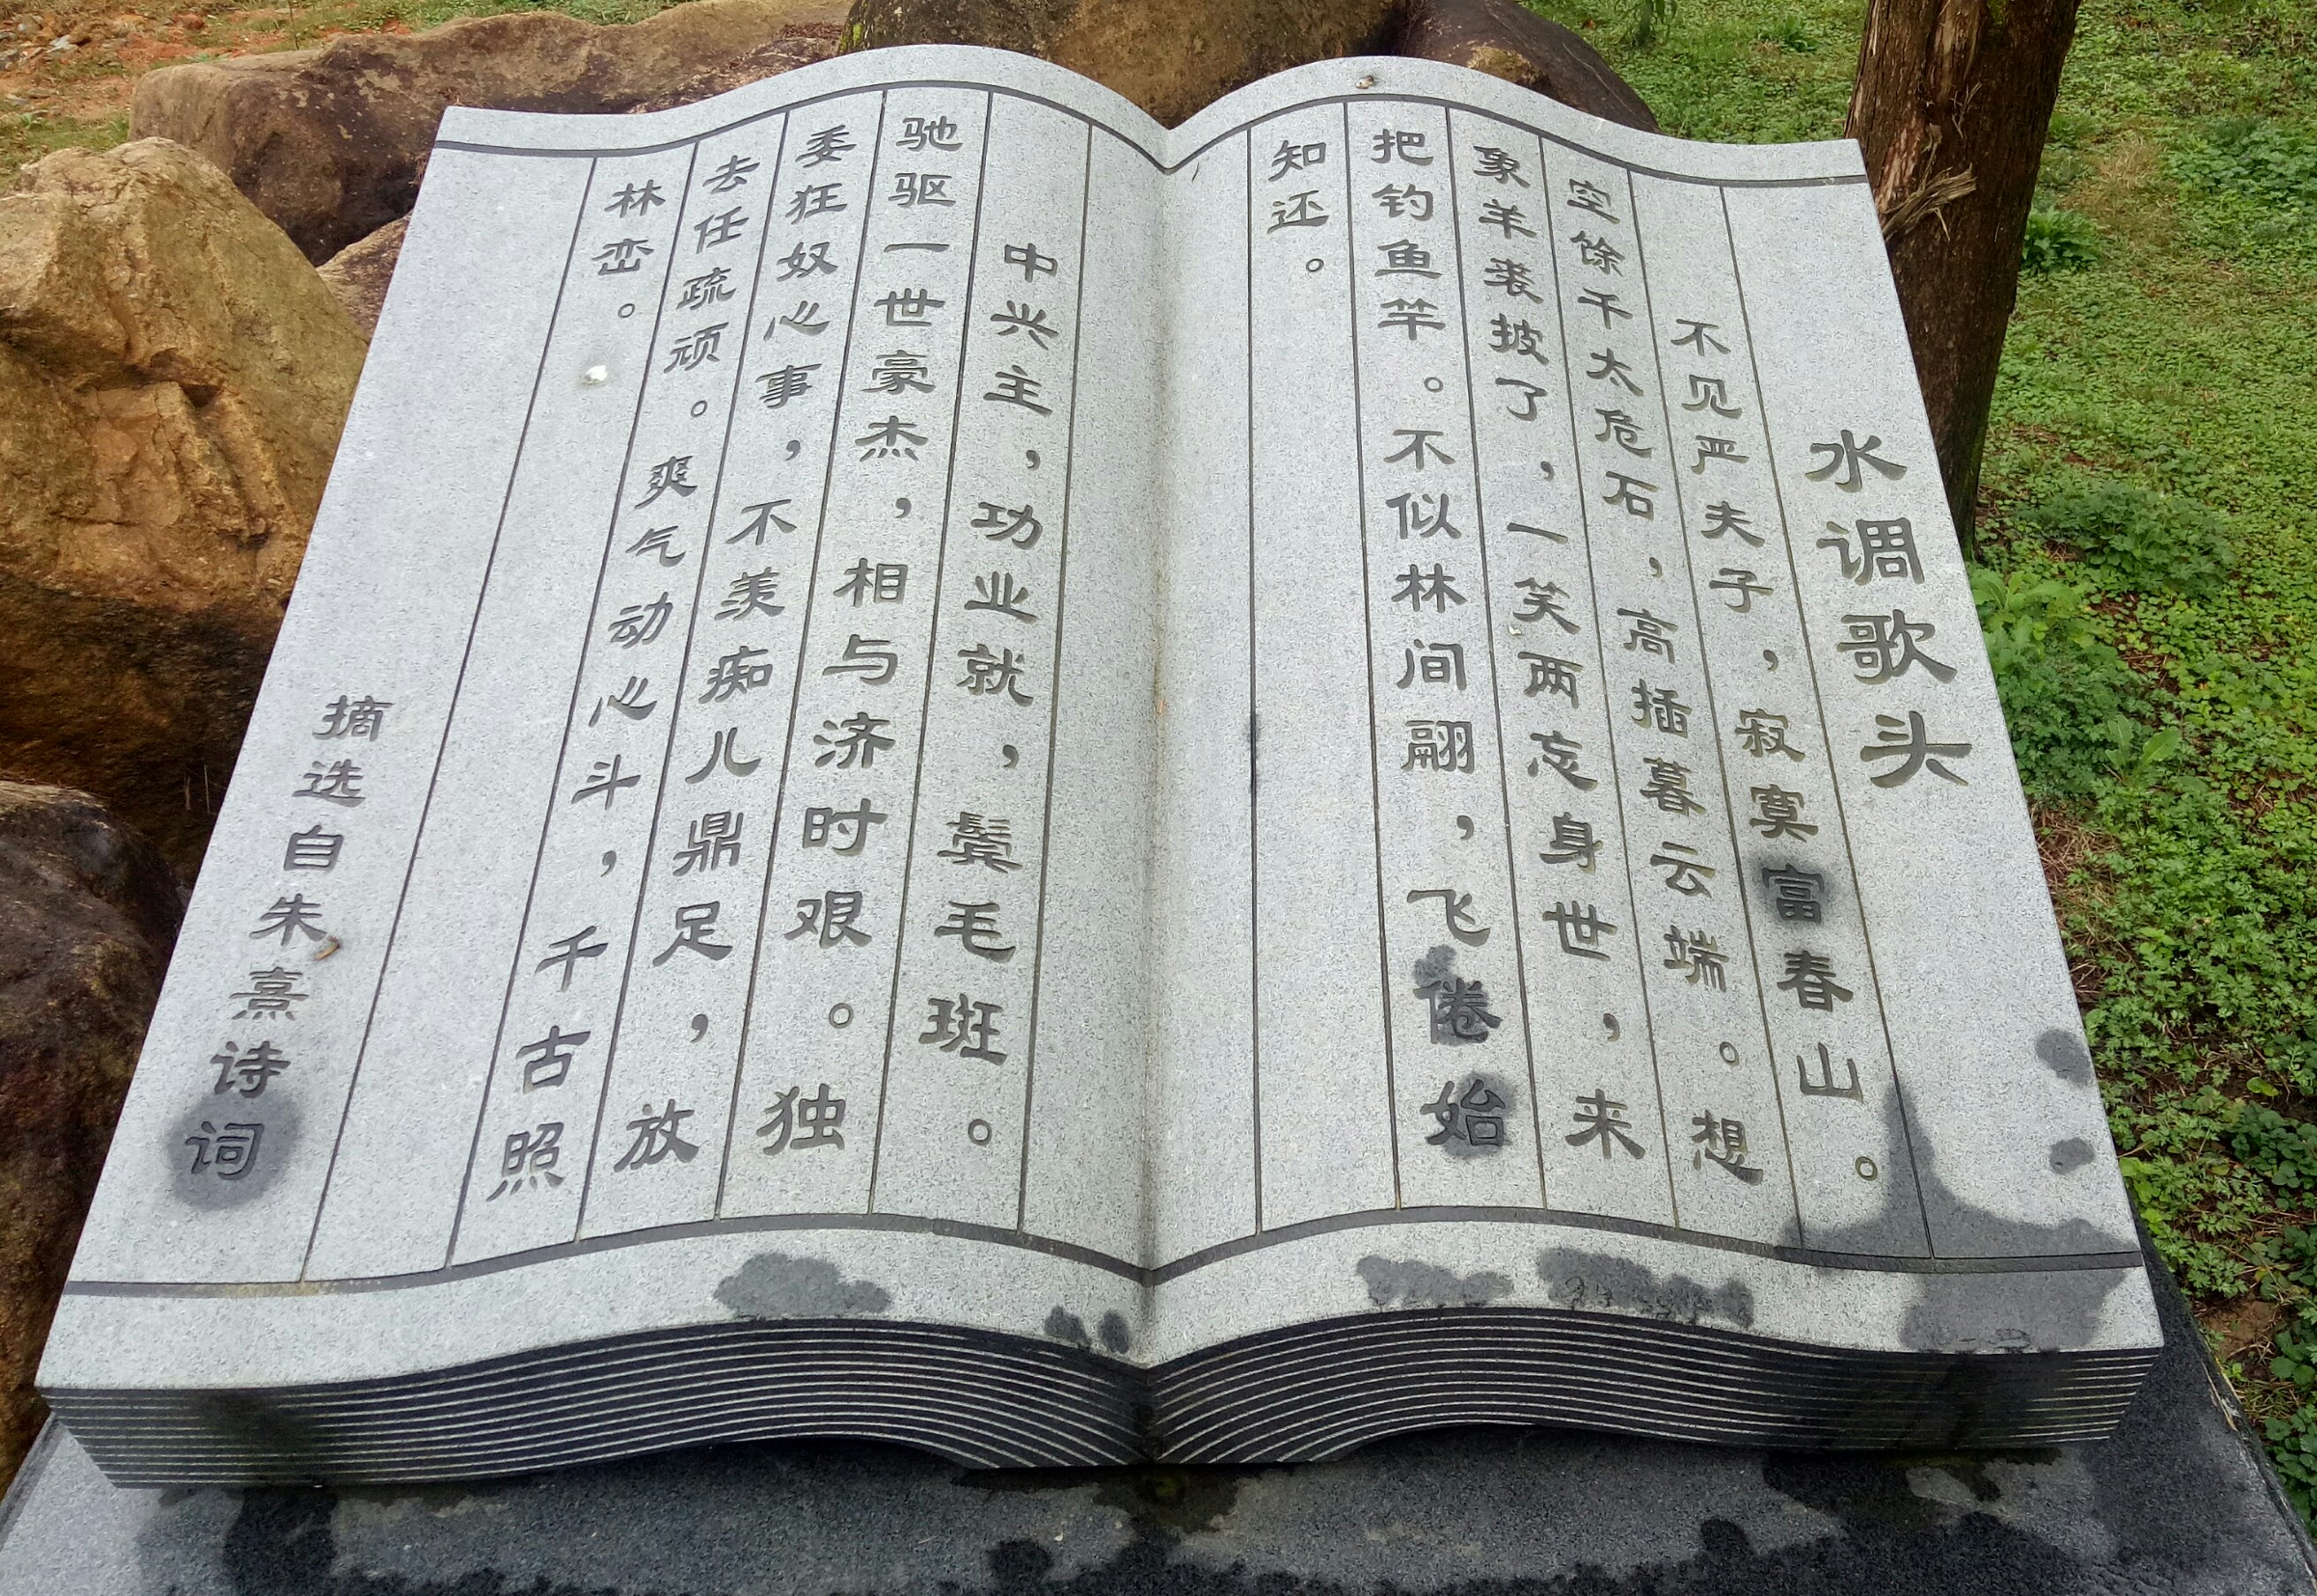 水调歌头
不见严夫子，寂寞富春山。
空馀千太危石，高插暮云端。想
象羊裘披了，一笑两忘身世，来
把钓鱼竿。不似林间翮，飞倦始
知还。
中兴主，功业就，鬓毛班。
驰驱一世豪杰，相与济时艰。独
委狂奴心事，不羡痴儿鼎足，放
去任疏顽。爽气动心斗，千古照
林峦。
摘选自朱熹诗词